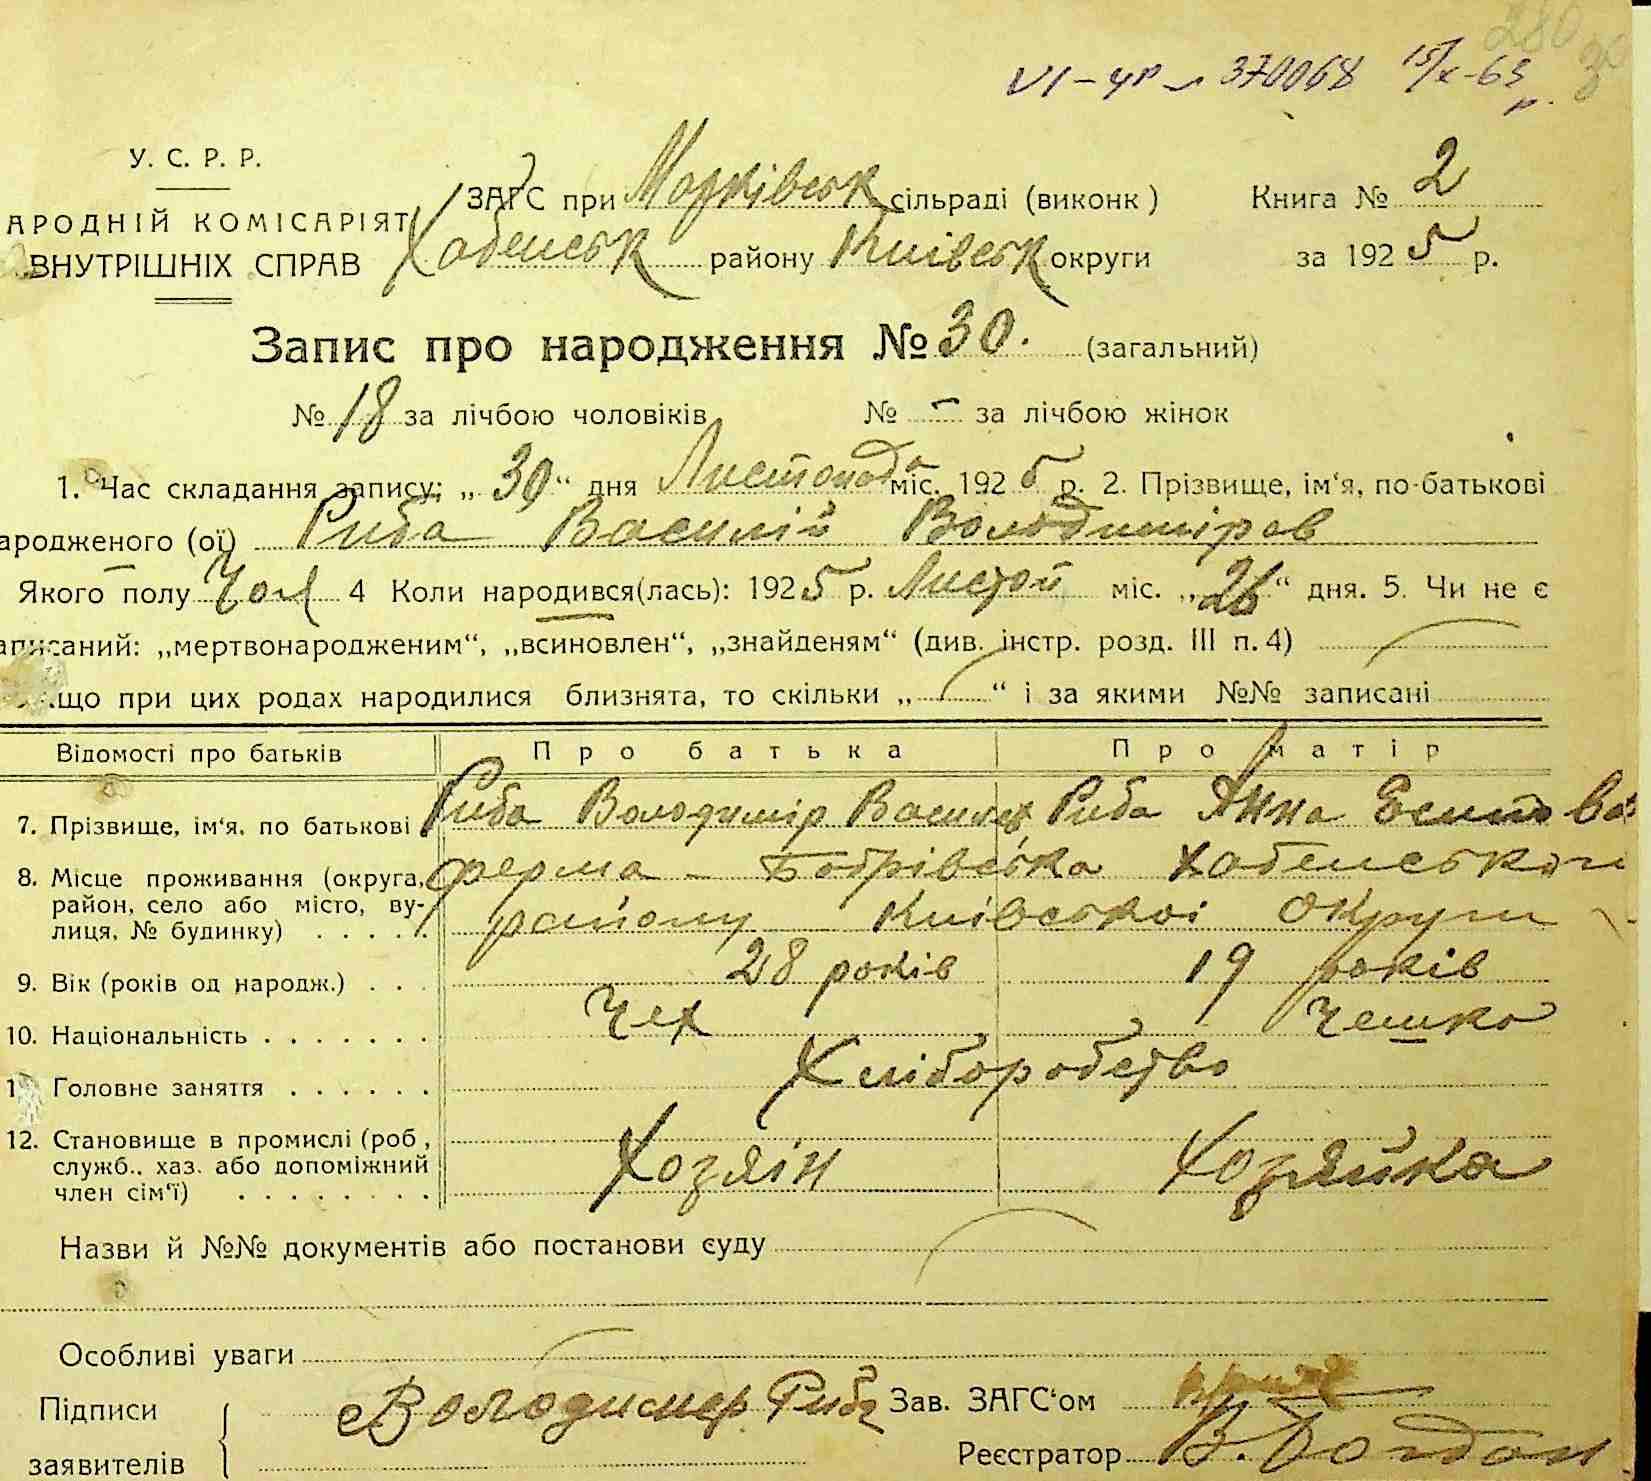 VI-ЧР № 370068 15/X-63 р.
У. С. Р. Р.
АРОДНІЙ КОМІСАРІЯТ
ВНУТРІШНІХ СПРАВ
ЗАГС при Марківськ сільраді (виконк)
Хабенськ району Київськ округи
Книга № 2
за 1925 р.
Запис про народження № 30. (загальний)
№ 18 за лічбою чоловіків № – за лічбою жінок
1. Час складання запису: „30“ дня Листопада міс. 1925 р. 2. Прізвище, ім‘я, по-батькові
ародженого (ої) Риба Василій Володимиров
Якого полу Чол 4 Коли народився(лась): 1925 р. Листоп міс. „26“ дня. 5. Чи не є
аписаний: „мертвонародженим“, „всиновлен“, „знайденям“ (див. інстр. розд. III п. 4)
що при цих родах народилися близнята, то скільки „ “ і за якими №№ записані
Відомості про батьків Про батька Про матір
7. Прізвище, ім‘я, по батькові Риба Володимір Васильов Риба Анна Есипова
8. Місце проживання (округа, район, село або місто, вулиця, № будинку) ферма – Бобрівська Хабенського
району Київської округи
9. Вік (років од народж.) 28 років 19 років
10. Національність Чех Чешка
1 Головне заняття Хліборобство
12. Становище в промислі (роб, служб., хаз. або допоміжний член сім‘ї) Хозяін Хозяйка
Назви й №№ документів або постанови суду
Особливі уваги
Підписи заявителів Володимер Риба
Зав. ЗАГС‘ом
Реєстратор В. Богдан